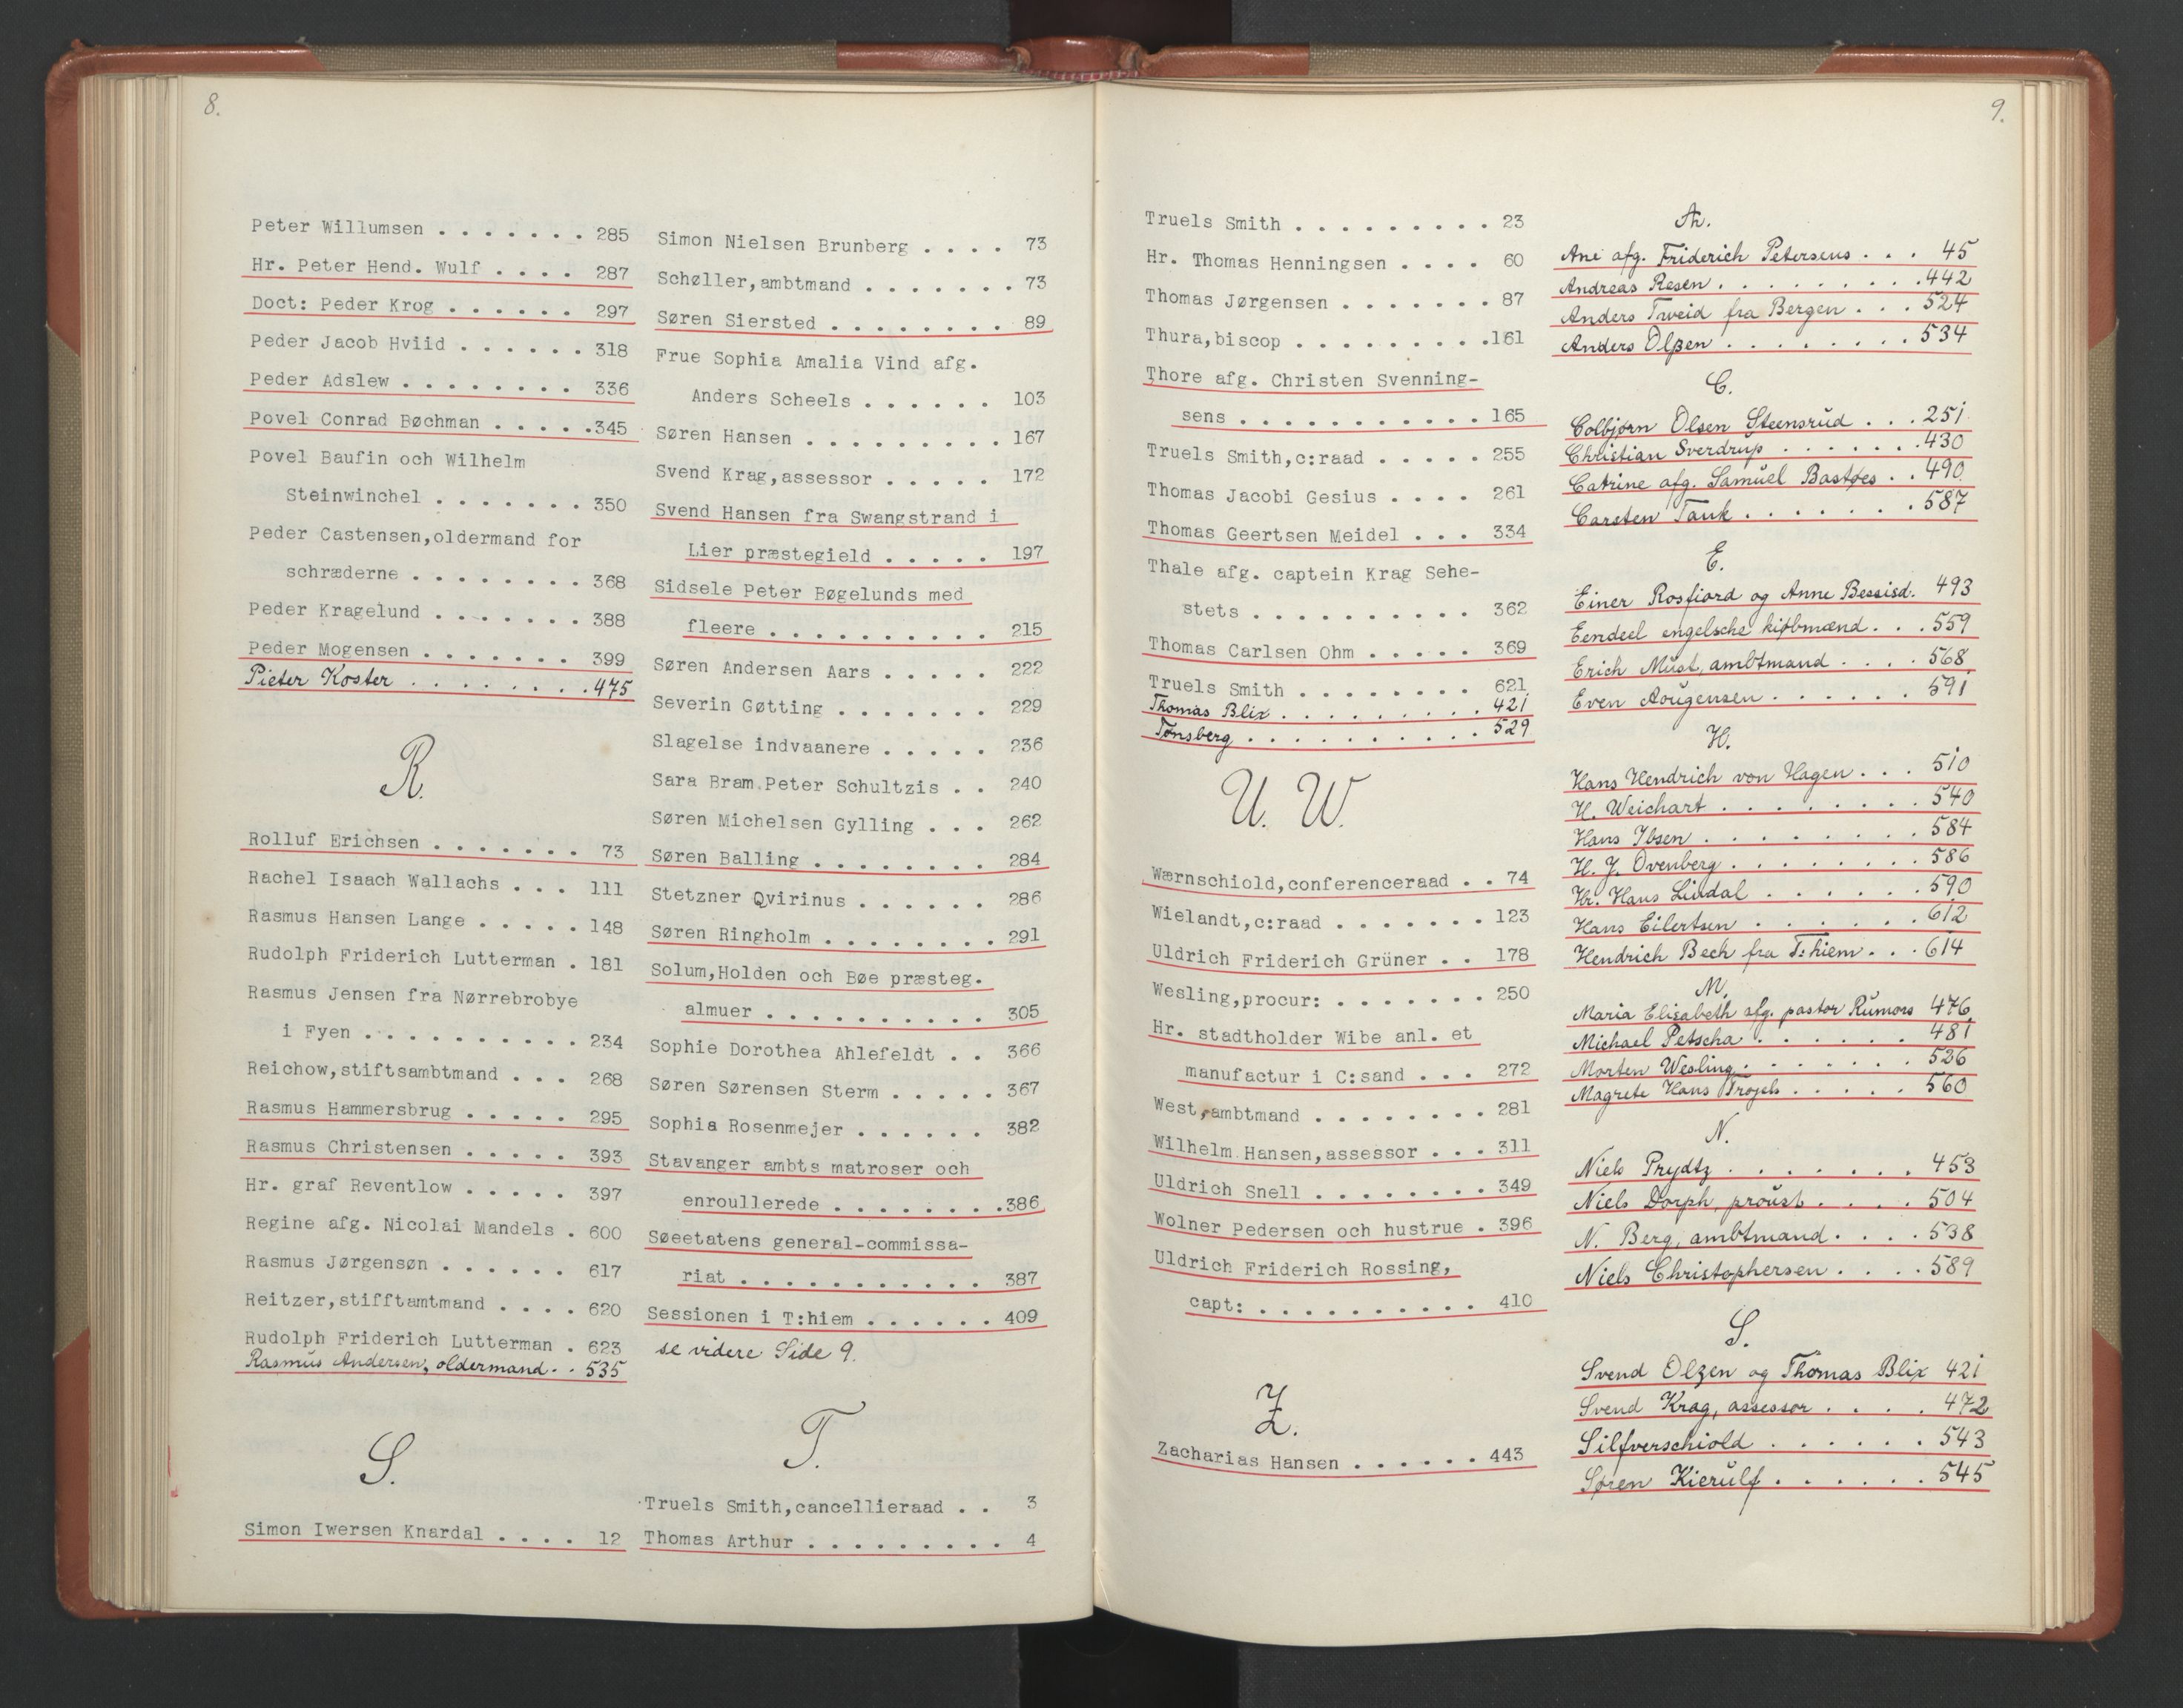 8.
Peter Willumsen . . . . . . . 285
Hr. Peter Hend. Wulf . . . . 287
Doct: Peder Krog . . . . . . 297
Peder Jacob Hviid . . . . . . 318
Peder Adslew . . . . . . . . 336
Povel Conrad Bøchman . . . . . 345
Povel Baufin och Wilhelm
Steinwinchel . . . . . . . 350
Peder Castensen,oldermand for
schræderne . . . . . . . . 368
Peder Kragelund . . . . . . . 388
Peder Mogensen . . . . . . . 399
Pieter Koster . . . . . . . . 475
R.
Rolluf Erichsen . . . . . . . 73
Rachel Isaach Wallachs . . . 111
Rasmus Hansen Lange . . . . . 148
Rudolph Friderich Lutterman . 181
Rasmus Jensen fra Nørrebrobye
i Fyen . . . . . . . . . . 234
Reichow,stiftsambtmand . . . 268
Rasmus Hammersbrug . . . . . 295
Rasmus Christensen . . . . . 393
Hr. graf Reventlow . . . . . 397
Regine afg. Nicolai Mandels . 600
Rasmus Jørgensøn . . . . . . 617
Reitzer,stifftamtmand . . . . 620
Rudolph Friderich Lutterman . 623
Rasmus Andersen, oldermand . . 535
S.
Simon Iwersen Knardal . . . . 12
Simon Nielsen Brunberg . . . . 73
Schøller,ambtmand . . . . . . . 73
Søren Siersted . . . . . . . . 89
Frue Sophia Amalia Vind afg.
Anders Scheels . . . . . . 103
Søren Hansen . . . . . . . . . 167
Svend Krag,assessor . . . . . 172
Svend Hansen fra Swangstrand i
Lier præstegield . . . . . 197
Sidsele Peter Bøgelunds med
fleere . . . . . . . . . . 215
Søren Andersen Aars . . . . . 222
Severin Gøtting . . . . . . . 229
Slagelse indvaanere . . . . . 236
Sara Bram.Peter Schultzis . . 240
Søren Michelsen Gylling . . . 262
Søren Balling . . . . . . . . 284
Stetzner Qvirinus . . . . . . 286
Søren Ringholm . . . . . . . . 291
Solum,Holden och Bøe præsteg.
almuer . . . . . . . . . . 305
Sophie Dorothea Ahlefeldt . . 366
Søren Sørensen Sterm . . . . . 367
Sophia Rosenmejer . . . . . . 382
Stavanger ambts matroser och
enroullerede . . . . . . . . 386
Søeetatens general-commissa-
riat . . . . . . . . . . . 387
Sessionen i T:hiem . . . . . . 409
se videre Side 9.
T.
Truels Smith,cancellieraad . . 3
Thomas Arthur . . . . . . . . . 4
9.
Truels Smith . . . . . . . . . 23
Hr. Thomas Henningsen . . . . 60
Thomas Jørgensen . . . . . . . 87
Thura,biscop . . . . . . . . . 161
Thore afg. Christen Svenning-
sens . . . . . . . . . . . 165
Truels Smith,c:raad . . . . . 255
Thomas Jacobi Gesius . . . . 261
Thomas Geertsen Meidel . . . 334
Thale afg. captein Krag Sehe-
stets . . . . . . . . . . 362
Thomas Carlsen Ohm . . . . . 369
Truels Smith . . . . . . . . 621
Thomas Blix . . . . . . . . . 421
Tønsberg . . . . . . . . . . 529
U. W.
Wærnschiold,conferenceraad . . 74
Wielandt,c:raad . . . . . . . 123
Uldrich Friderich Grüner . . 178
Wesling,procur: . . . . . . . 250
Hr. stadtholder Wibe anl. et
manufactur i C:sand . . . 272
West,ambtmand . . . . . . . . 281
Wilhelm Hansen,assessor . . . 311
Uldrich Snell . . . . . . . . 349
Wolner Pedersen och hustrue . 396
Uldrich Friderich Rossing,
capt: . . . . . . . . . . 410
Z.
Zacharias Hansen . . . . . . 443
A.
Ane afg. Friderich Petersens . . . 45
Andreas Resen . . . . . . . . . 442
Anders Tweid fra Bergen . . . 524
Anders Olßen . . . . . . . . 534
C.
Colbjørn Olsen Steensrud . . . 251
Christian Sverdrup . . . . . . 430
Catrine afg. Samuel Bastøes . . 490
Carsten Tank . . . . . . . 587
E.
Einer Rosfiord og Anne Bessisd. 493
Eendeel engelsche kiøbmænd . . . 559
Erich Must, ambtmand . . . . 568
Even Aougensen . . . . . . 591
H.
Hans Hendrich von Hagen . . . 510
H. Weichart . . . . . . . . 540
Hans Ibsen . . . . . . . . . 584
H. J. Ovenberg . . . . . . . . 586
Hr. Hans Lindal . . . . . . . 590
Hans Eilertsen . . . . . . . 612
Hendrich Bech fra T:hiem . . . 614
M.
Maria Elisabeth afg. pastor Rumors 476
Michael Petscha . . . . . . 481
Morten Wesling . . . . . . . 526
Magrete Hans Trojels . . . . . 560
N.
Niels Prydtz . . . . . . . 453
Niels Dorph, proust . . . . 504
N. Berg, ambtmand . . . . 538
Niels Christophersen . . . . 589
S.
Svend Olzen og Thomas Blix 421
Svend Krag, assessor . . . . 472
Silfverschiold . . . . . . 543
Søren Kierulf . . . . . . 545